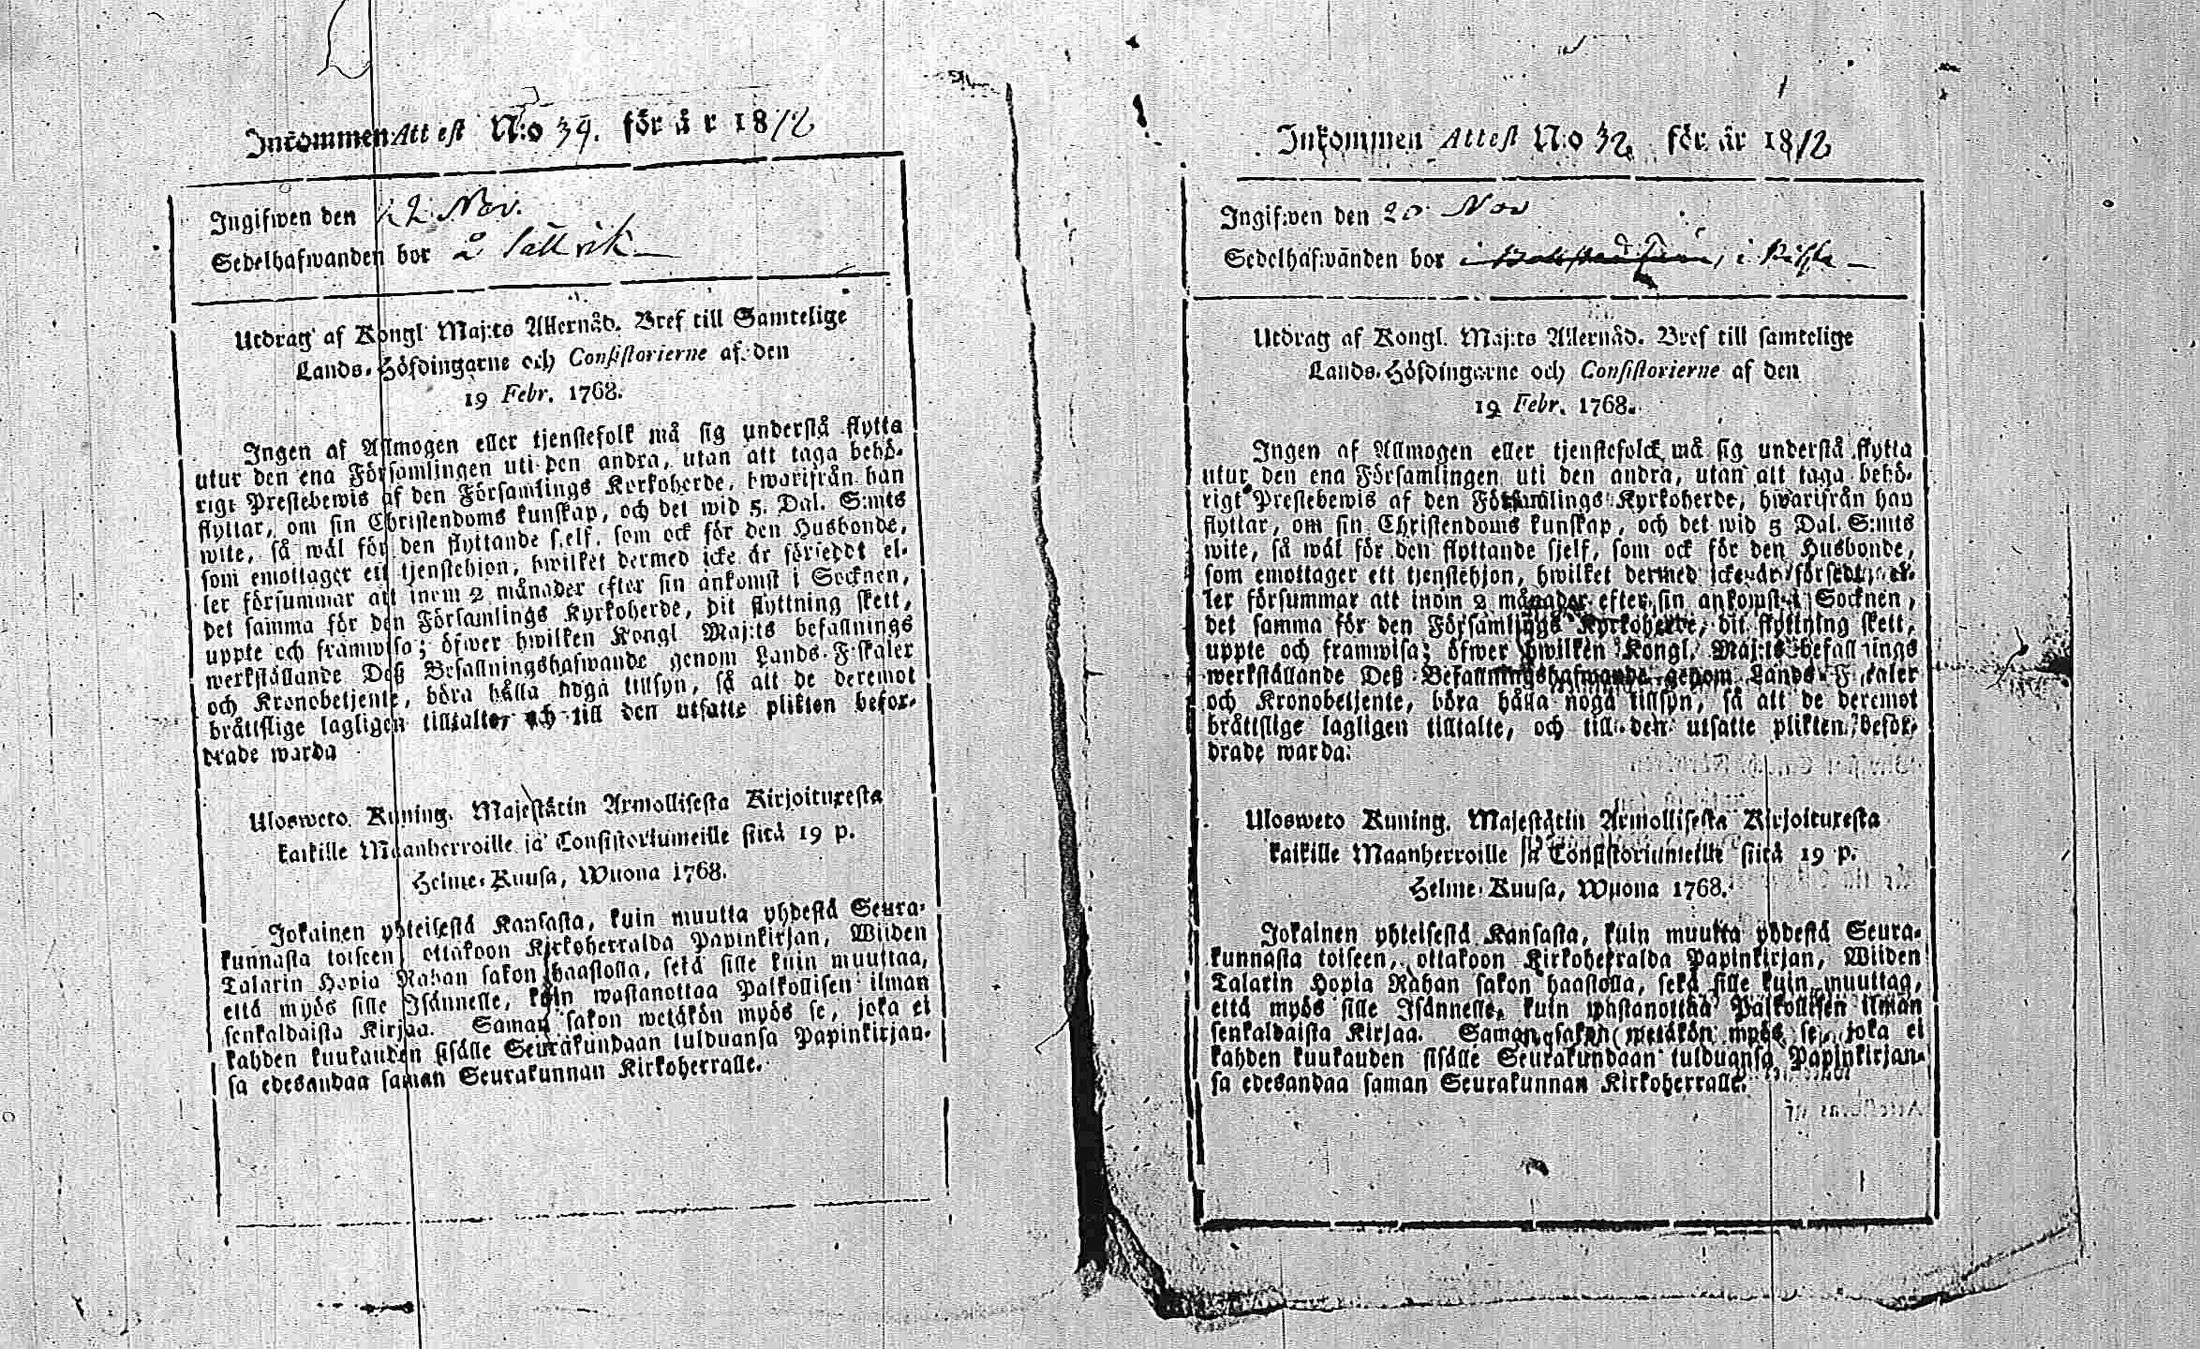 Inkommen Attest N:o 34. för år 1812
Ingifwen den 12 Nov.
Sedelhafwanden bor å
Utdrag af Kongl Maj:ts Allernåd. Bref till Samtelige
Lands-Höfdingarne och Consistorierne af den
19 Febr. 1768.
Ingen af Allmogen eller tjenstefolk må sig understå flytta
utur den ena Församlingen uti den andra, utan att taga behö-
rigt Prestebewis af den Församlings Kyrkoherde, hwarifrån han
flyttar, om sin Christendoms kunskap, och det wid 5. Dal. S:mts
wite, så wäl för den flyttande sjelf, som ock för den Husbonde,
som emottager ett tjenstehjon, hwilket dermed icke är försedt el-
ler försummar att inom 2 månader efter sin ankomst i Socknen,
det samma för den Församlings Kyrkoherde, dit flyttning skett,
uppte och framwisa; öfwer hwilken Kongl Maj:ts befallnings
werkställande Deß Befallningshafwande genom Lands-Fiskaler
och Kronobetjente, böra hålla noga tillsyn, så att de deremot
bråttslige lagligen tilltalte, och till den utsatte plikten befor-
drade warda
Ulosweto Kuning. Majestätin Armollisesta Kirjoituxesta
kaikille Maanherroille ja Consistoriumeille siitä 19 p.
Helme-Kuusa, Wuona 1768.
Jokainen yhteisestä Kansasta, kuin muutta yhdestä Seura-
kunnasta toiseen, ottakoon Kirkoherralda Papinkirjan, Wiiden
Talarin Hopia Rahan sakon haastolla, sekä sille kuin muuttaa,
että myös sille Isännelle, kuin wastanottaa Palkollisen ilman
senkaldaista Kirjaa. Saman sakon wetäkön myös se, joka ei
kahden kuukauden sisälle Seurakundaan tulduansa Papinkirjan-
sa edesandaa saman Seurakunnan Kirkoherralle.
Inkommen Attest N:o 32. för år 1812
Ingifwen den 20 Nov
Sedelhafwanden bor i
Utdrag af Kongl. Maj:ts Allernåd. Bref till samtelige
Lands-Höfdingarne och Consistorierne af den
19 Febr. 1768.
Ingen af Allmogen eller tjenstefolck må sig understå flytta
utur den ena Församlingen uti den andra, utan att taga behö-
rigt Prestebewis af den Församlings Kyrkoherde, hwarifrån han
flyttar, om sin Christendoms kunskap, och det wid 5 Dal. S:mts
wite, så wäl för den flyttande sjelf, som ock för den Husbonde,
som emottager ett tjenstehjon, hwilket dermed icke är försedt, el-
ler försummar att inom 2 månader efter sin ankomst i Socknen,
det samma för den Församlings Kyrkoherde, dit flyttning skett,
uppte och framwisa; öfwer hwilken Kongl. Maj:ts befallnings
werkställande Deß Befallningshafwande genom Lands-Fiskaler
och Kronobetjente, böra hålla noga tillsyn, så att de deremot
bråttslige lagligen tilltalte, och till den utsatte plikten befor-
drade warda.
Ulosweto Kuning. Majestätin Armollisesta Kirjoituxesta
kaikille Maanherroille ja Consistoriumeille siitä 19 p.
Helme-Kuusa, Wuona 1768.
Jokainen yhteisestä Kansasta, kuin muutta yhdestä Seura-
kunnasta toiseen, ottakoon Kirkoherralda Papinkirjan, Wiiden
Talarin Hopia Rahan sakon haastolla, sekä sille kuin muuttaa,
että myös sille Isännelle, kuin wastanottaa Palkollisen ilman
senkaldaista Kirjaa. Saman sakon wetäkön myös se, joka ei
kahden kuukauden sisälle Seurakundaan tulduansa Papinkirjan-
sa edesandaa saman Seurakunnan Kirkoherralle.